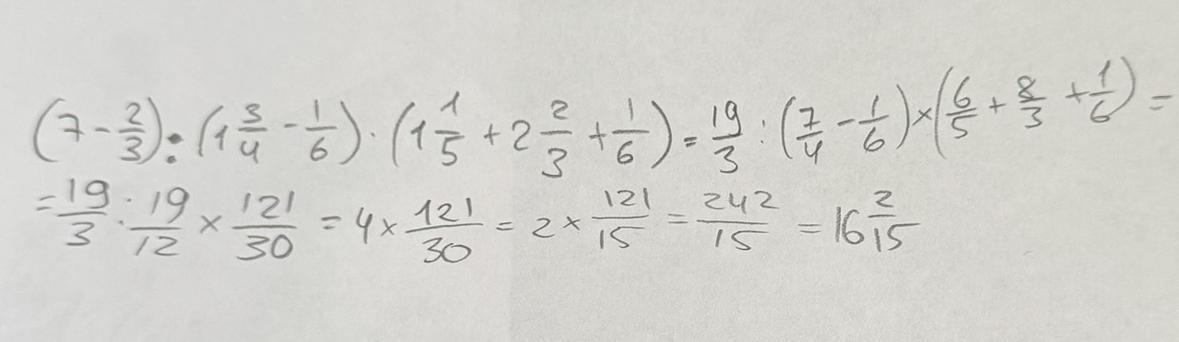 (7 - 2/3) : (1 3/4 - 1/6) · (1 1/5 + 2 2/3 + 1/6) = 19/3 : (7/4 - 1/6) × (6/5 + 8/3 + 1/6) =
= 19/3 : 19/12 × 121/30 = 4 × 121/30 = 2 × 121/15 = 242/15 = 16 2/15